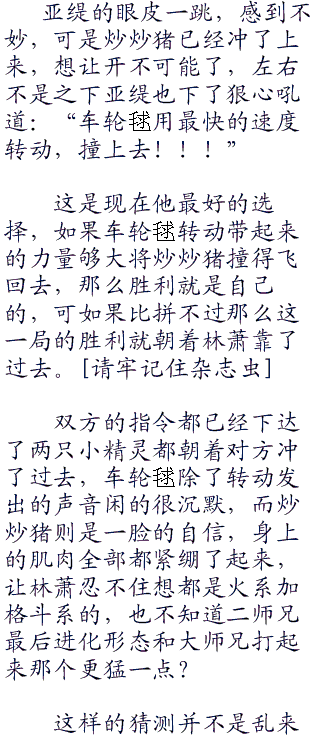 亚缇的眼皮一跳，感到不
妙，可是炒炒猪已经冲了上
来，想让开不可能了，左右
不是之下亚缇也下了狠心吼
道：“车轮毬用最快的速度
转动，撞上去！！！”
这是现在他最好的选
择，如果车轮毬转动带起来
的力量够大将炒炒猪撞得飞
回去，那么胜利就是自己
的，可如果比拼不过那么这
一局的胜利就朝着林萧靠了
过去。[请牢记住杂志虫]
双方的指令都已经下达
了两只小精灵都朝着对方冲
了过去，车轮毬除了转动发
出的声音闲的很沉默，而炒
炒猪则是一脸的自信，身上
的肌肉全部都紧绷了起来，
让林萧忍不住想都是火系加
格斗系的，也不知道二师兄
最后进化形态和大师兄打起
来那个更猛一点？
这样的猜测并不是乱来